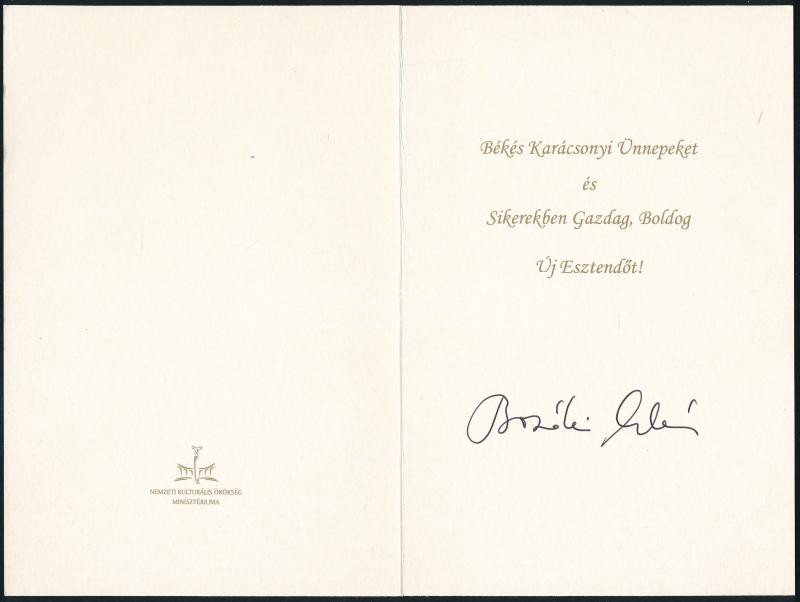 NEMZETI KULTURÁLIS ÖRÖKSÉG
MINISZTÉRIUMA
Békés Karácsonyi Ünnepeket
és
Sikerekben Gazdag, Boldog
Új Esztendőt!